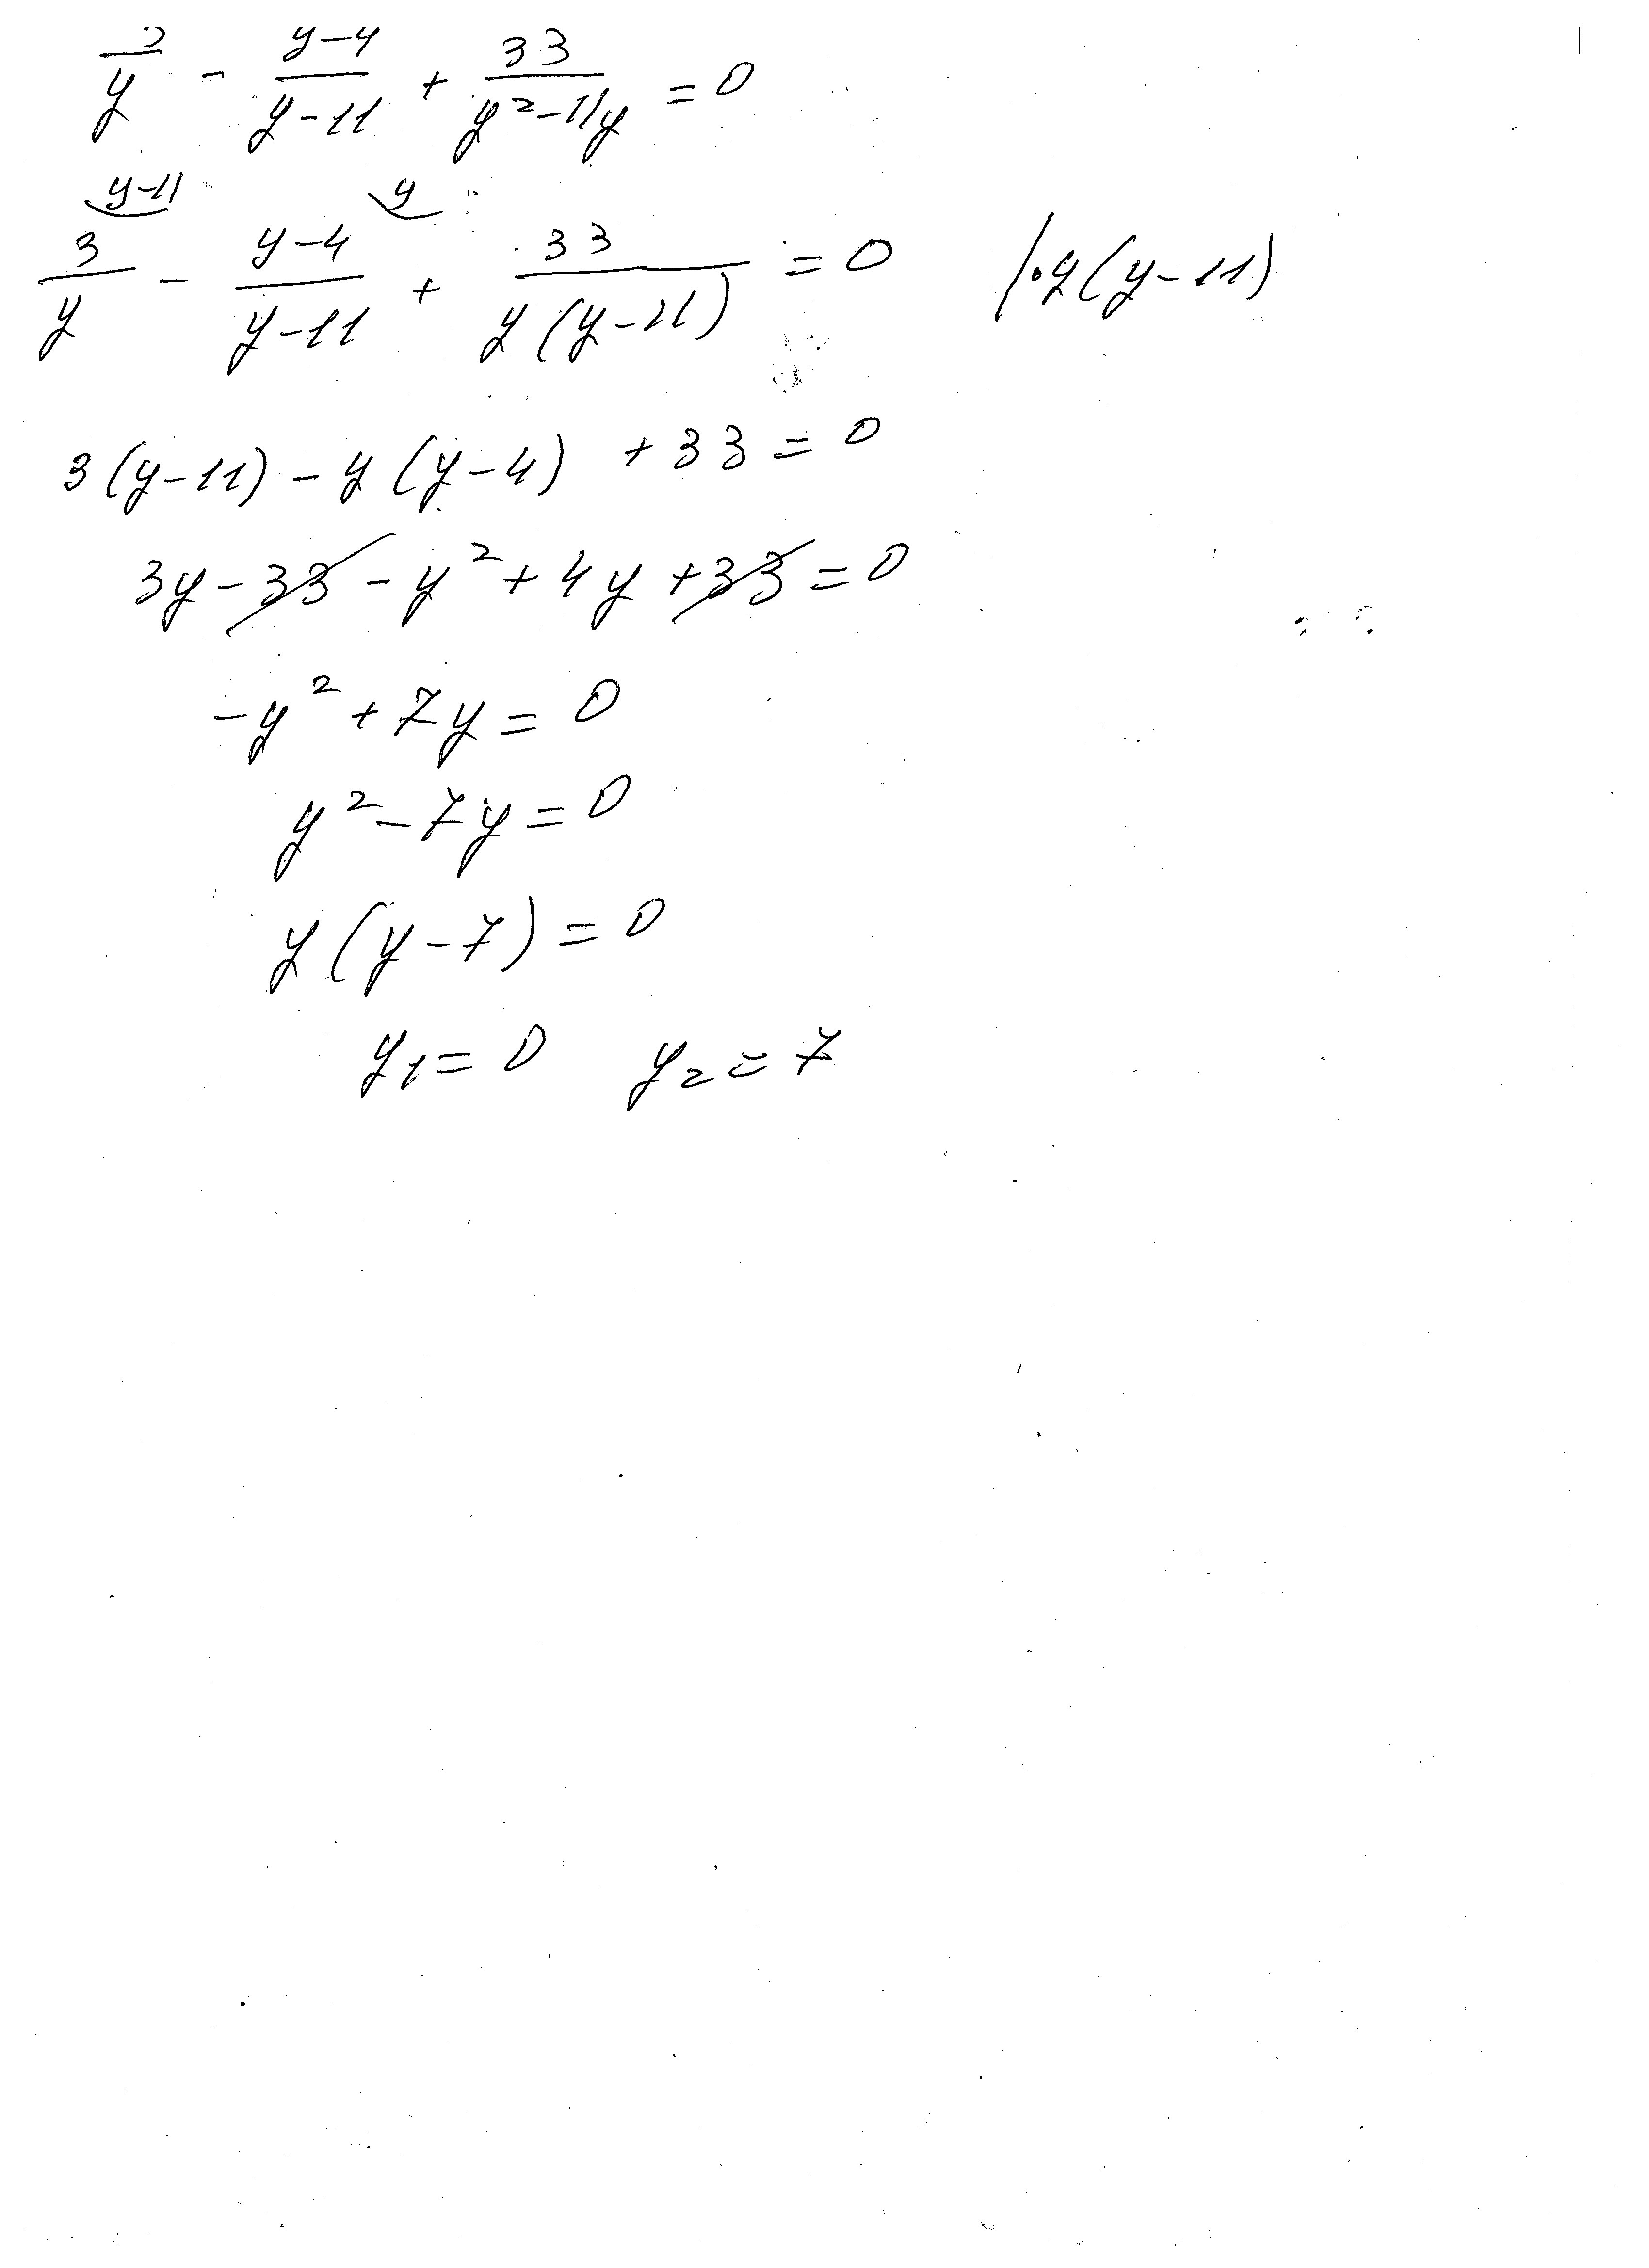 3/y - (y-4)/(y-11) + 33/(y²-11y) = 0
y-11 y
3/y - (y-4)/(y-11) + 33/(y(y-11)) = 0 |·y(y-11)
3(y-11) - y(y-4) +33 = 0
3y-33-y²+4y+33=0
-y²+7y=0
y²-7y=0
y(y-7)=0
y₁=0 y₂=7